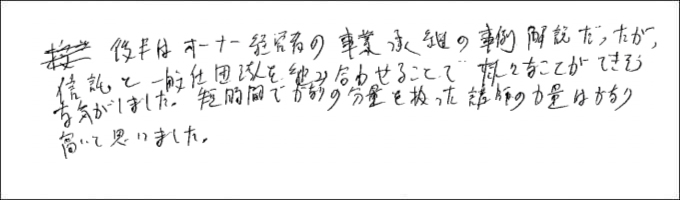 後半はオーナー経営者の事業承継の事例解説だったが、
信託と一般社団法人を組み合わせることで様々なことができそう
な気がしました。短時間でかなりの分量を扱った講師の力量はかなり
高いと思いました。